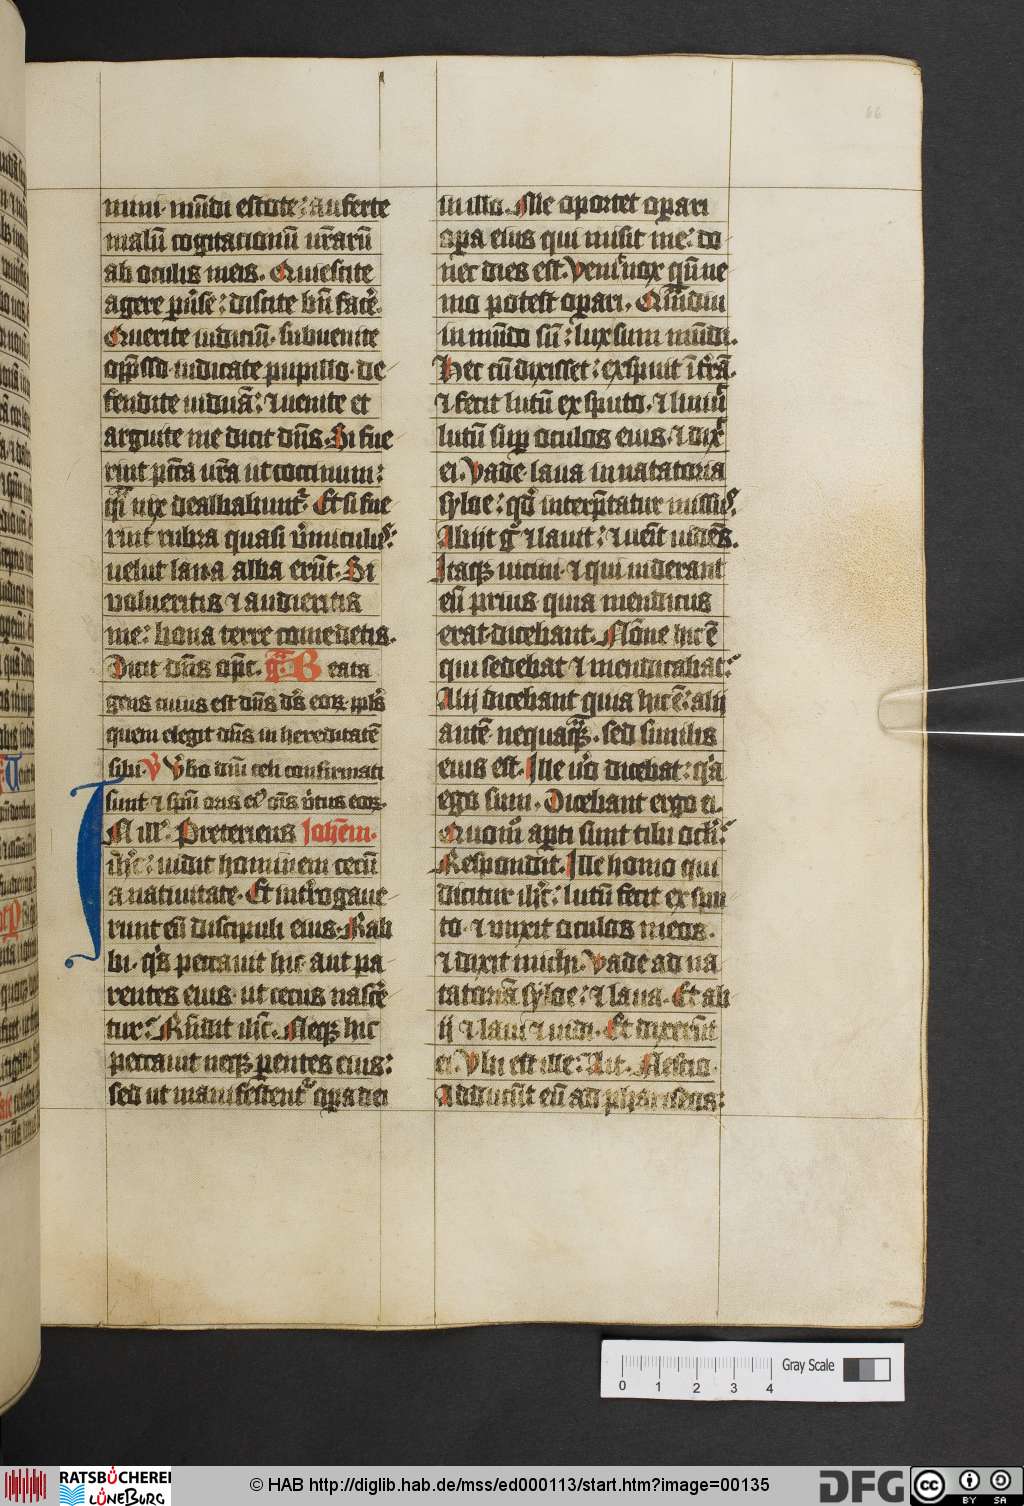 66
mini· mūdi estote: auferte
malū cogitacionū vr̄arū
ab oculis meis. Quiescite
agere p̄uˢe: discite bn̄ facē.
Querite iudiciū· subuenite
opp̄sso· iudicate pupillo· de
fendite viduā: ⁊ venite et
arguite me dicit dn̄s. Si fue
rint pc̄ca vr̄a ut coccinum:
qͣi nix dealbabunt᷑. Et si fue
rint rubra quasi v̓miculus:
velut lana alba erūt. Si
volueritis ⁊ audieritis
me: bona terre comedetis.
Dicit dn̄s op̄c. gͣ Beata
gens cuius est dn̄s ds̄ eoꝝ· ppl̓s
quem elegit dn̄s in hereditatē
sibi· V V̓bo dn̄i celi confirmati
sunt ⁊ spū oris ei᷒ om̄s v̓tus eoꝝ.
IN illᵒ. Preteriens Johem.
ih̄c: vidit hominem cecū
a natiuitate. Et int̓rogaue
runt eū discipuli eius· Rab
bi· qͥs peccauit hic· aut pa
rentes eius· ut cecus nascē
tur: Rn̄dit ih̄c. Neqꝫ hic
peccauit neqꝫ ꝑentes eius:
sed ut manifestent᷑ oꝑa dei
in illo. Me oportet oꝑari
oꝑa eius qui misit me: do
nec dies est. Veniͭ nox qn̄ ne
mo potest oꝑari. Qͣmdiu
in mūdo sū: lux sum mūdi.
Hec cū dixisset: exspuit ī t̓rā.
⁊ fecit lutū ex sputo. ⁊ liniuͭ
lutū suꝑ oculos eius. ⁊ dixͭ
ei. Vade· laua in natatoria
syloe: qd̓ interp̄tatur missus.
Abijt gͦ ⁊ lauit: ⁊ venit videns.
Itaqꝫ vicini ⁊ qui viderant
eū prius· quia mendicus
erat· dicebant. Nōne hic ē
qui sedebat ⁊ mendicabat:
Alij dicebant quia hic ē: alij
autē nequaqͣꝫ. sed similis
eius est. Ille v̓o dicebat: qͥa
ego sum. Dicebant ergo ei.
Quomͦ aꝑti sunt tibi ocl̓i:
Respondit. Ille homo qui
dicitur ih̄c: lutū fecit ex spu
to· ⁊ unxit oculos meos.
⁊ dixit michi. Vade ad na
tatoriā syloe: ⁊ laua. Et ab
ij ⁊ laui ⁊ vidi. Et dixerūt
ei. Vbi est ille: Ait. Nescio.
Adducūt eū ad phariseos:
Gray Scale
0 1 2 3 4
RATSBÜCHEREI
LÜNEBURG
© HAB http://diglib.hab.de/mss/ed000113/start.htm?image=00135
DFG
cc BY SA